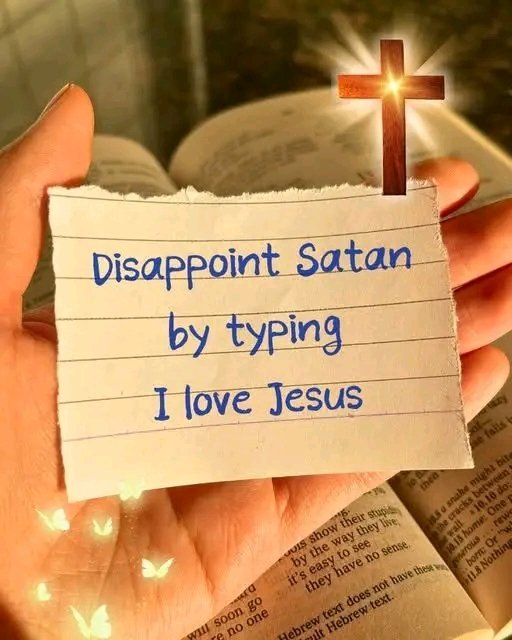 Disappoint Satan
by typing
I love Jesus
show their stupidity
by the way they live;
it's easy to see
they have no sense.
will soon go
no one
Hebrew text does not have these
Hebrew text.
a snake might bite
the cracks between
then